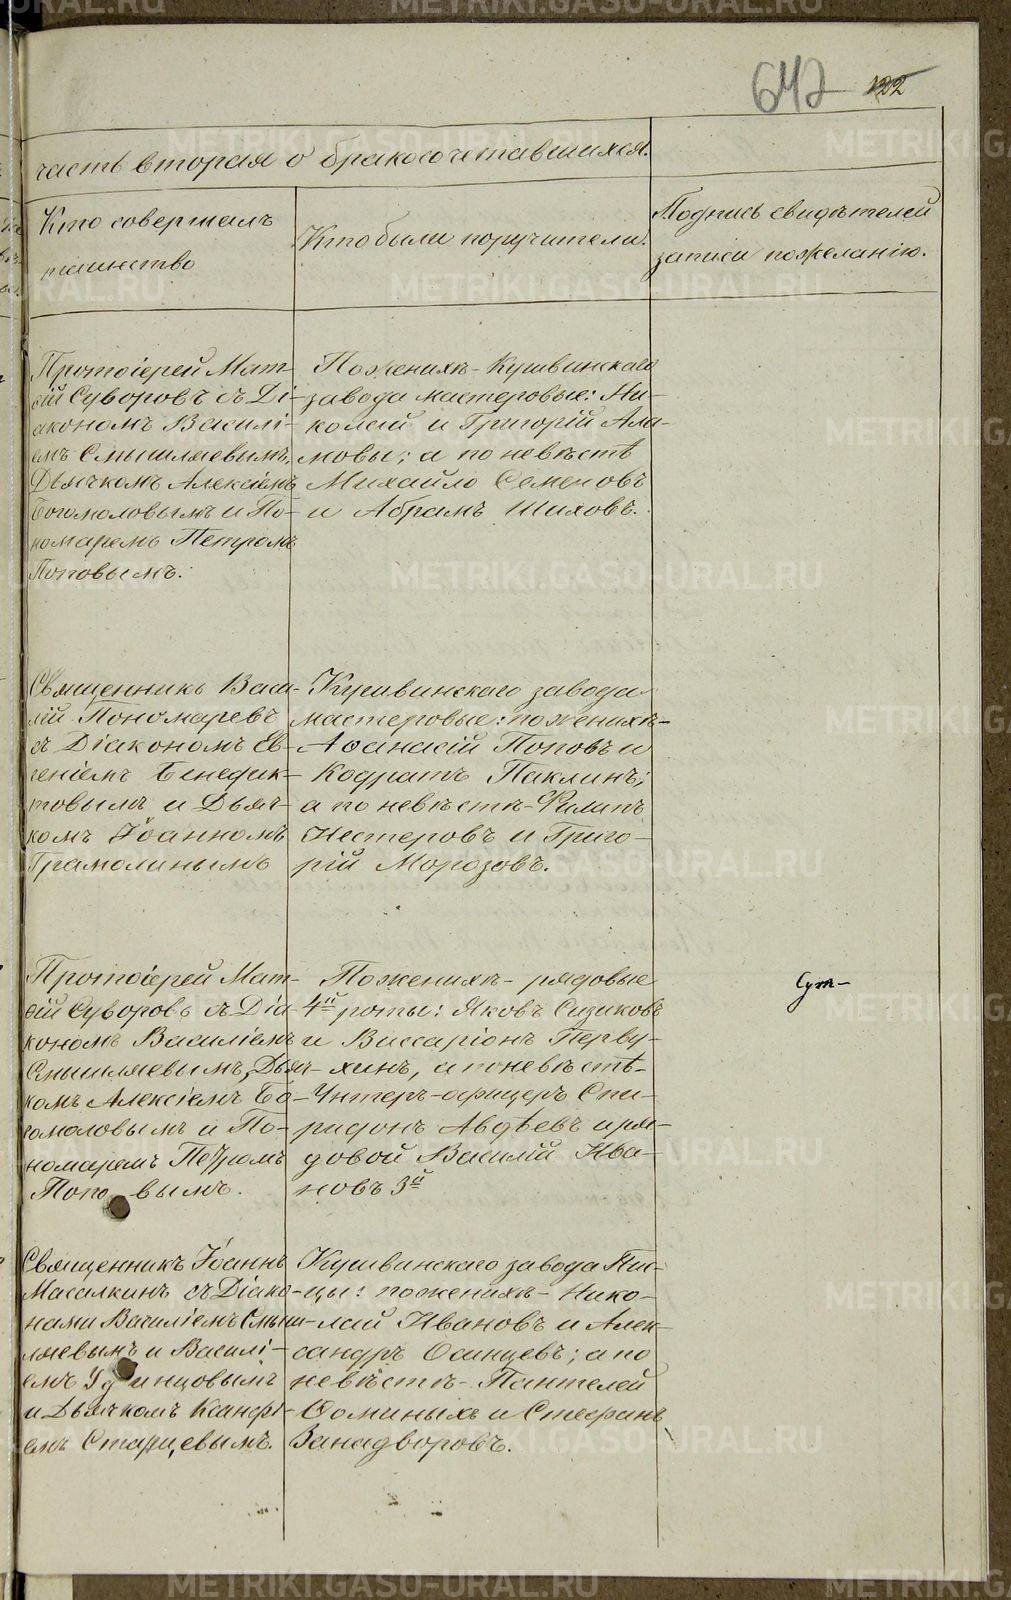 642 122
часть вторая о бракосочетавшихся.
Кто совершалъ
таинство
Кто были поручители.
Подпись свидѣтелей
записи по желанію.
Протоіерей Мат-
ѳій Суворовъ съ Ді-
акономъ Василі-
емъ Смышляевымъ,
Дьячкомъ Алексіемъ
Богомоловымъ и По-
номаремъ Петромъ
Поповымъ.
По женихѣ - Кушвинскаго
завода мастеровые: Ни-
колай и Григорій Ала-
мовы; а по невѣстѣ
Михайло Семеновъ
и Абрамъ Шиховъ.
Священникъ Васи-
лій Пономаревъ
съ Діакономъ Ев-
геніемъ Бенедик-
товымъ и Дьяч-
комъ Іоанномъ
Грамолинымъ
Кушвинскаго завода
мастеровые: по женихѣ-
Аѳанасій Поповъ и
Кодратъ Паклинъ;
а по невѣстѣ - Филипъ
Нестеровъ и Григо-
рій Морозовъ.
Протоіерей Мат-
ѳій Суворовъ съ Діа-
кономъ Василіемъ
Смышляевымъ, Дьяч-
комъ Алексіемъ Бо-
гомоловымъ и По-
номаремъ Петромъ
Поповымъ.
По женихѣ - рядовые
4й роты: Яковъ Сизиковъ
и Виссаріонъ Перву-
хинъ, а по невѣстѣ-
Унтеръ-офицеръ Спи-
ридонъ Авдѣевъ и ря-
довой Василій Ива-
новъ 3й
Священникъ Іоаннъ
Масалкинъ съ Діако-
нами Василіемъ Смыш-
ляевымъ и Василі-
емъ Удинцовымъ
и Дьячкомъ Ксенфі-
емъ Старцевымъ.
Кушвинскаго завода Пи-
цы: по женихѣ - Нико-
лай Ивановъ и Алек-
сандръ Осинцевъ; а по
невѣстѣ - Пантелей
Ѳоминыхъ и Стефанъ
Занадворовъ.
METRIKI.GASO-URAL.RU